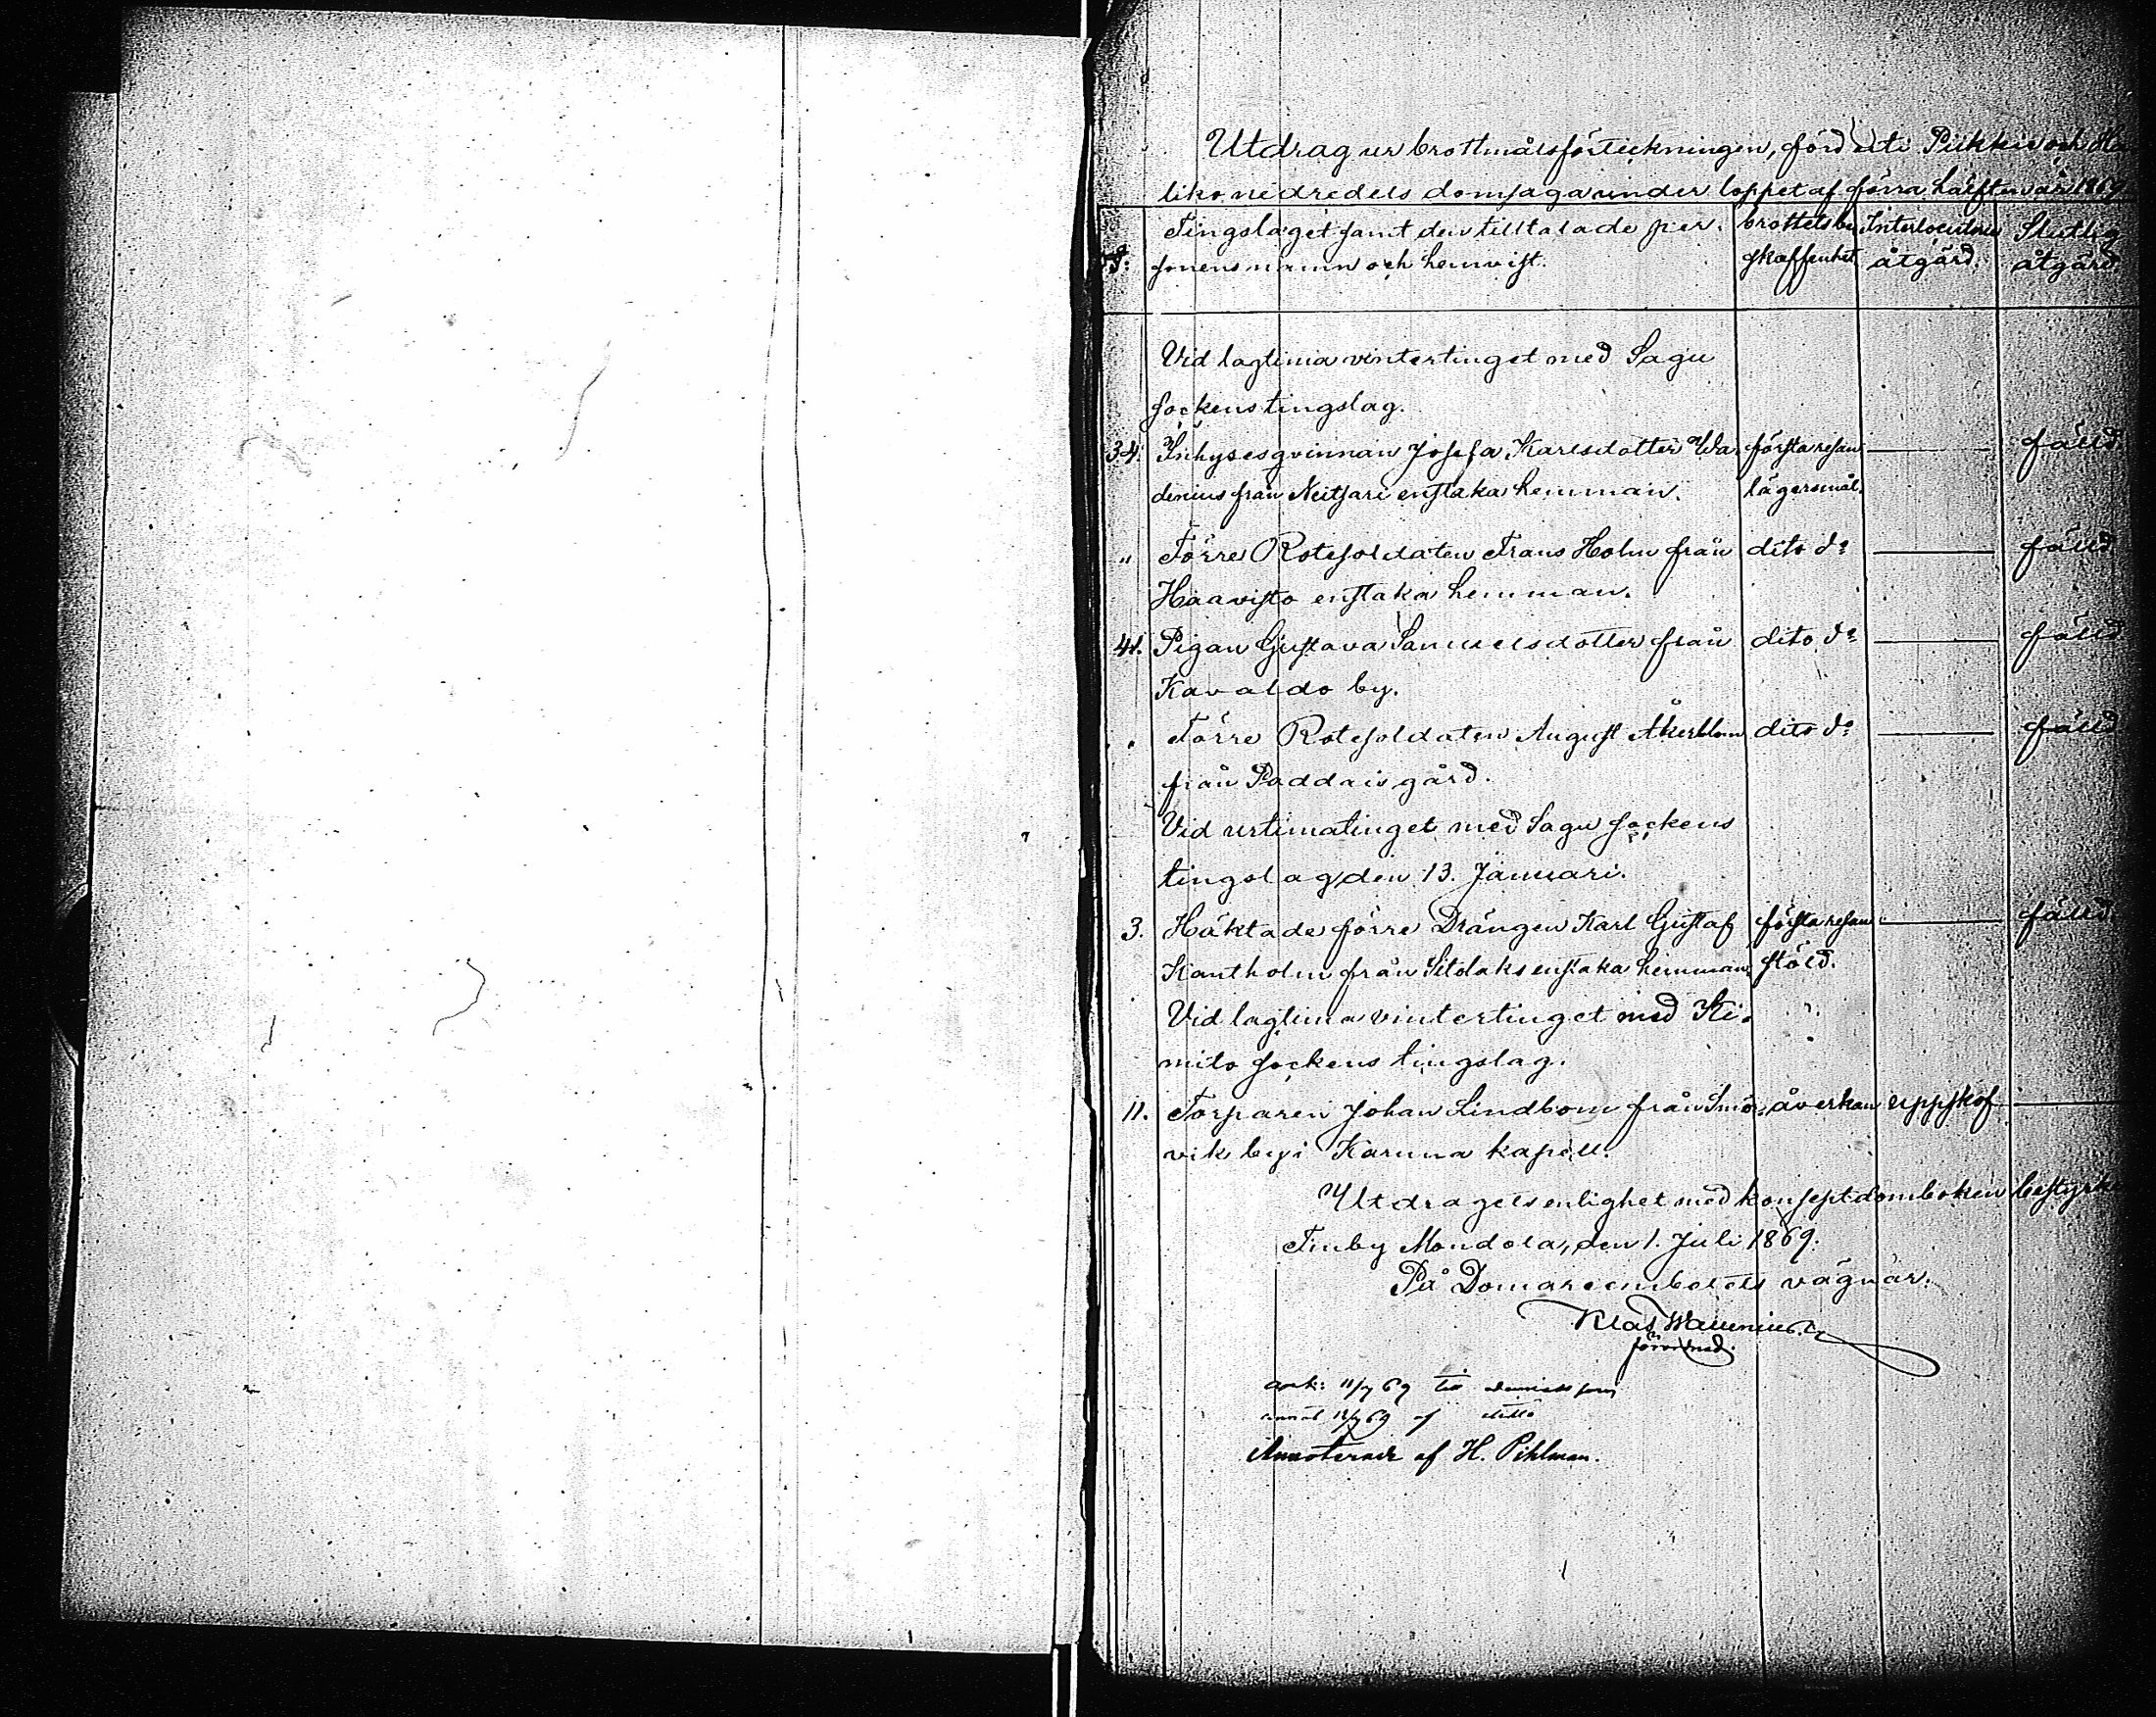 Utdrag ur brottmålsförteckningen, förd uti Piikkis och Ha
liko nedredels domsaga under loppet af förra hälften år 1869
Tingslaget samt den tilltalade per- brottets be Interlocutoris Slutlig
sonens namn och hemvist. skaffenhet åtgärd. åtgärd.
Vid lagtima vintertinget med Sagu
sockens tingslag.
34. Inhysesqvinnan Josefa Karlsdotter Wa- första resan fälld.
denius från Neitsari enstaka hemman. lägersmål.
" Förre Rotesoldaten Frans Holm från dito do fälld
Haavisto enstaka hemman.
41. Pigan Gustava Samuelsdotter från dito do fälld
Kavaldo by.
" Förre Rotesoldaten August Åkerblom dito do fälld
från Paddais gård.
Vid urtimatinget med Sagu sockens
tingslag den 13. Januari.
3. Häktade förre Drängen Karl Gustaf första resan fälld.
Kantholm från Sitolaks enstaka hemman. stöld.
Vid lagtima vintertinget med Ki-
mito sockens tingslag.
11. Torparen Johan Lindbom från Smör- åverkan uppskof
vik by i Karuna kapell.
Utdragets enlighet med konseptdomboken bestyrke
Finby Mondola, den 1. Juli 1869.
På Domareembetets vägnar.
Klas Wallenius
förordnad.
ank: 11/7 69
12/7 69 af ditto
Annoterade af H. Pihlman.